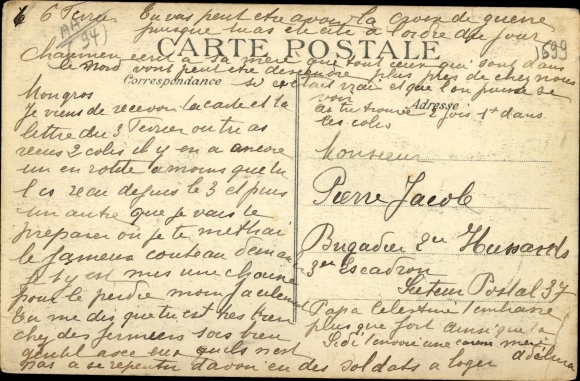 6 Fevrier Tu vas peut etre avoir la croix de guerre
puisque tu as ete cité a l'ordre du jour
CARTE POSTALE
1699
AA
94
ecrit a sa mere que tout ceux qui sont dans
le Nord vont peut etre descendre plus pres de chez nous
si c'etait vrai et que l'on puisse se
voir
Correspondance
Adresse
as tu trouvé 2 fois 1+ dans
les colis
Mon gros
Je viens de recevoir la carte et la
lettre du 3 Fevrier ou tu as
recus 2 colis il y en a ancore
un en route a moins que tu
l es recu depuis le 3 et puis
un autre que je vais te
preparer ou je te mettrai
le fameux couteau
s'il y est mes une chaine
pour le perdre moin facilement
Tu me dis que tu est tres bien
chez des fermiers sois bien
gentil avec eux qu'ils n'est
pas a se repentir d'avoir eu des soldats a loger
Monsieur
Pierre Jacob
Brigadier 2eu Hussards
3eu Escadron
Secteur Postal 37
Papa Celestine t'embrasse
plus que fort ainsi que ta
mere